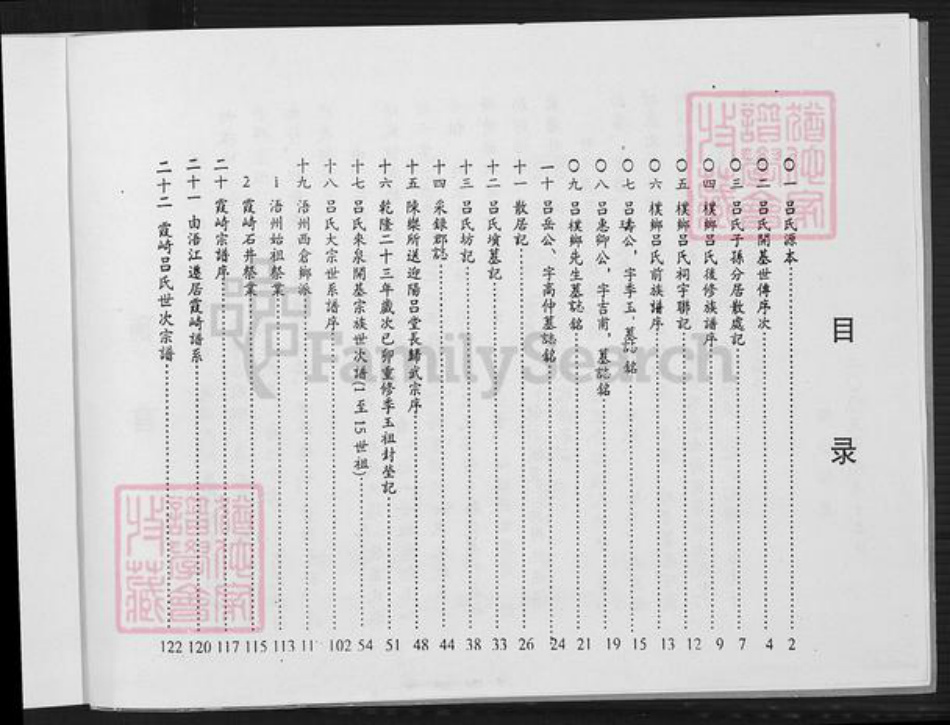 目录
〇一 呂氏源本 2
〇二 呂氏開基世傳序次 4
〇三 呂氏子孫分居散處記 7
〇四 樸鄉呂氏後修族譜序 9
〇五 樸鄉呂氏祠宇聯記 12
〇六 樸鄉呂氏前族譜序 13
〇七 呂璹公，字季玉，墓誌銘 15
〇八 呂惠卿公，字吉甫，墓誌銘 19
〇九 呂樸鄉先生墓誌銘 21
一十 呂岳公、字高仲墓誌銘 24
十一 散居記 26
十二 呂氏墳墓記 33
十三 呂氏坊記 38
十四 采錄郡誌 44
十五 陳燦所送迎陽呂堂長歸武宗序 48
十六 乾隆二十三年歲次己卯重修季玉祖封塋記 51
十七 呂氏來泉開基宗族世次譜(1至15世祖) 54
十八 呂氏大宗世系譜序 102
十九 浯州西倉鄉派 11
1 浯州始祖祭業 113
2 霞崎石井祭業 115
二十 霞崎宗譜序 117
二十一 由浯江遷居霞崎譜系 120
二十二 霞崎呂氏世次宗譜 122
FamilySearch
譜學會
收藏
譜學會
收藏